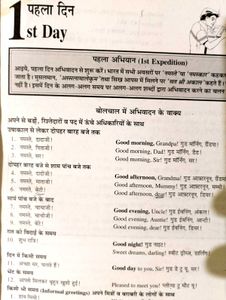 पहला दिन
1st Day
पहला अभियान (1st Expedition)
आइये, पहला अभिवादन से शुरू करें। भारत में सभी अवसरों पर 'नमस्ते' या 'नमस्कार' कहकर
जाता है। मुसलमान, 'अस्सलामालेकुम' तथा सिख आपस में मिलने पर 'सत श्री अकाल' कहते हैं।
नहीं है। इसमें दिन के अलग-अलग समय पर अलग-अलग शब्दों द्वारा अभिवादन करने का चलन
बोलचाल में अभिवादन के वाक्य
अपने से बड़ों, रिश्तेदारों व पद में ऊंचे अधिकारियों के साथ
उषाकाल से लेकर दोपहर बारह बजे तक
1. नमस्ते, दादाजी! Good morning, Grandpa! गुड मॉर्निंग, ग्रैंडपा!
2. नमस्ते, पिताजी! Good morning, Dad! गुड मॉर्निंग, डैड!
3. नमस्ते, सर! Good morning, Sir! गुड मॉर्निंग, सर!
दोपहर बारह बजे से शाम पांच बजे तक
4. नमस्ते, दादीजी! Good afternoon, Grandma! गुड आफ़्टरनून,
5. नमस्ते, माताजी! Good afternoon, Mummy! गुड आफ़्टरनून, मम्मी!
6. नमस्ते, बेटी! Good afternoon, dear! गुड आफ़्टरनून, डियर!
सायं पांच बजे के बाद
7. नमस्ते, चाचाजी! Good evening, Uncle! गुड ईवनिंग, अंकल!
8. नमस्ते, चाचीजी! Good evening, Auntie! गुड ईवनिंग, आंटी!
9. नमस्ते, Good evening, dear! गुड ईवनिंग, डियर!
रात को विदाई के समय
10. शुभ रात्रि! Good night! गुड नाइट!
Sweet dreams, darling! स्वीट ड्रीम्स, डार्लिंग!
दिन में किसी समय
11. Good day to you, Sir! गुड डे टू यू, सर!
भेंट के समय
12. आपसे मिलकर बहुत खुशी हुई! Pleased to meet you! प्लीज़्ड टू मीट यू!
किसी भी समय (Informal greetings) अपने मित्रों व बराबरी के लोगों के साथ